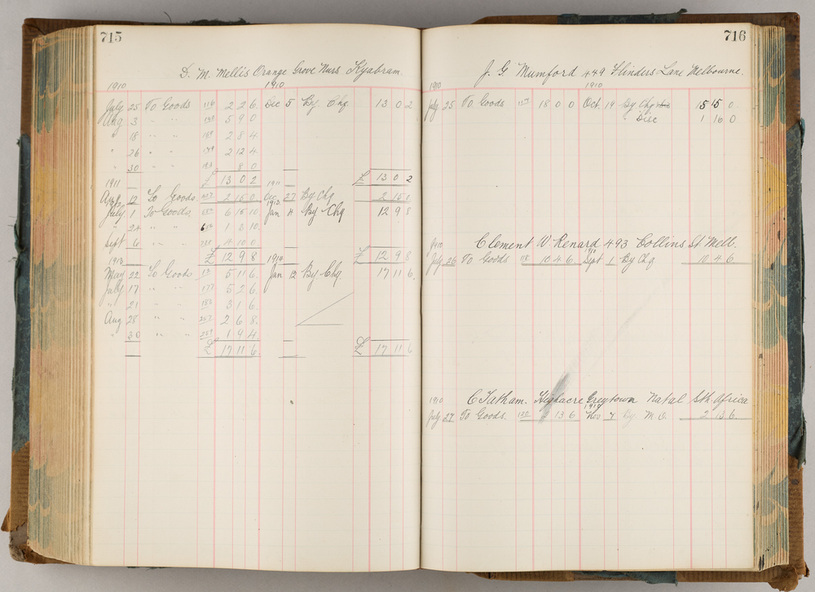 715
D. M. Mellis Orange Grove Nurs. Kyabram.
1910 1910
July 25 To Goods 2 2 6 Dec 5 By Chq 13 0 2
Aug 3 " " 5 9 0
" 18 " " 2 8 4
" 26 " " 2 12 4
" 30 " " 8 0
£ 13 0 2 £ 13 0 2
1911
12 To Goods 2 15 0 27 By Chq 2 15 0
July 1 To Goods 6 15 10 Jan 11 By Chq 12 9 8
" 24 " " 1 3 10
Sept 6 " " 4 10 0
£ 12 9 8 £ 12 9 8
1912
May 22 To Goods 5 11 6 Jan 12 By Chq. 17 11 6
July 17 " " 5 2 6
" 21 " " 3 1 6
Aug 28 " " 2 6 8
" 30 " " 1 9 4
£ 17 11 6 £ 17 11 6
716
J. G Mumford 449 Flinders Lane Melbourne.
1910 1910
July 25 To Goods 18 0 0 Oct. 19 By Chq 15 15 0
" Disc 1 16 0
1910 Clement W. Renard 493 Collins St Melb.
July 26 To Goods 10 4 6 Sept 1 By Chq 10 4 6
1910 C Tatham. Greytown Natal Sth Africa
July 27 To Goods 13 6 7 By M.O 2 13 6